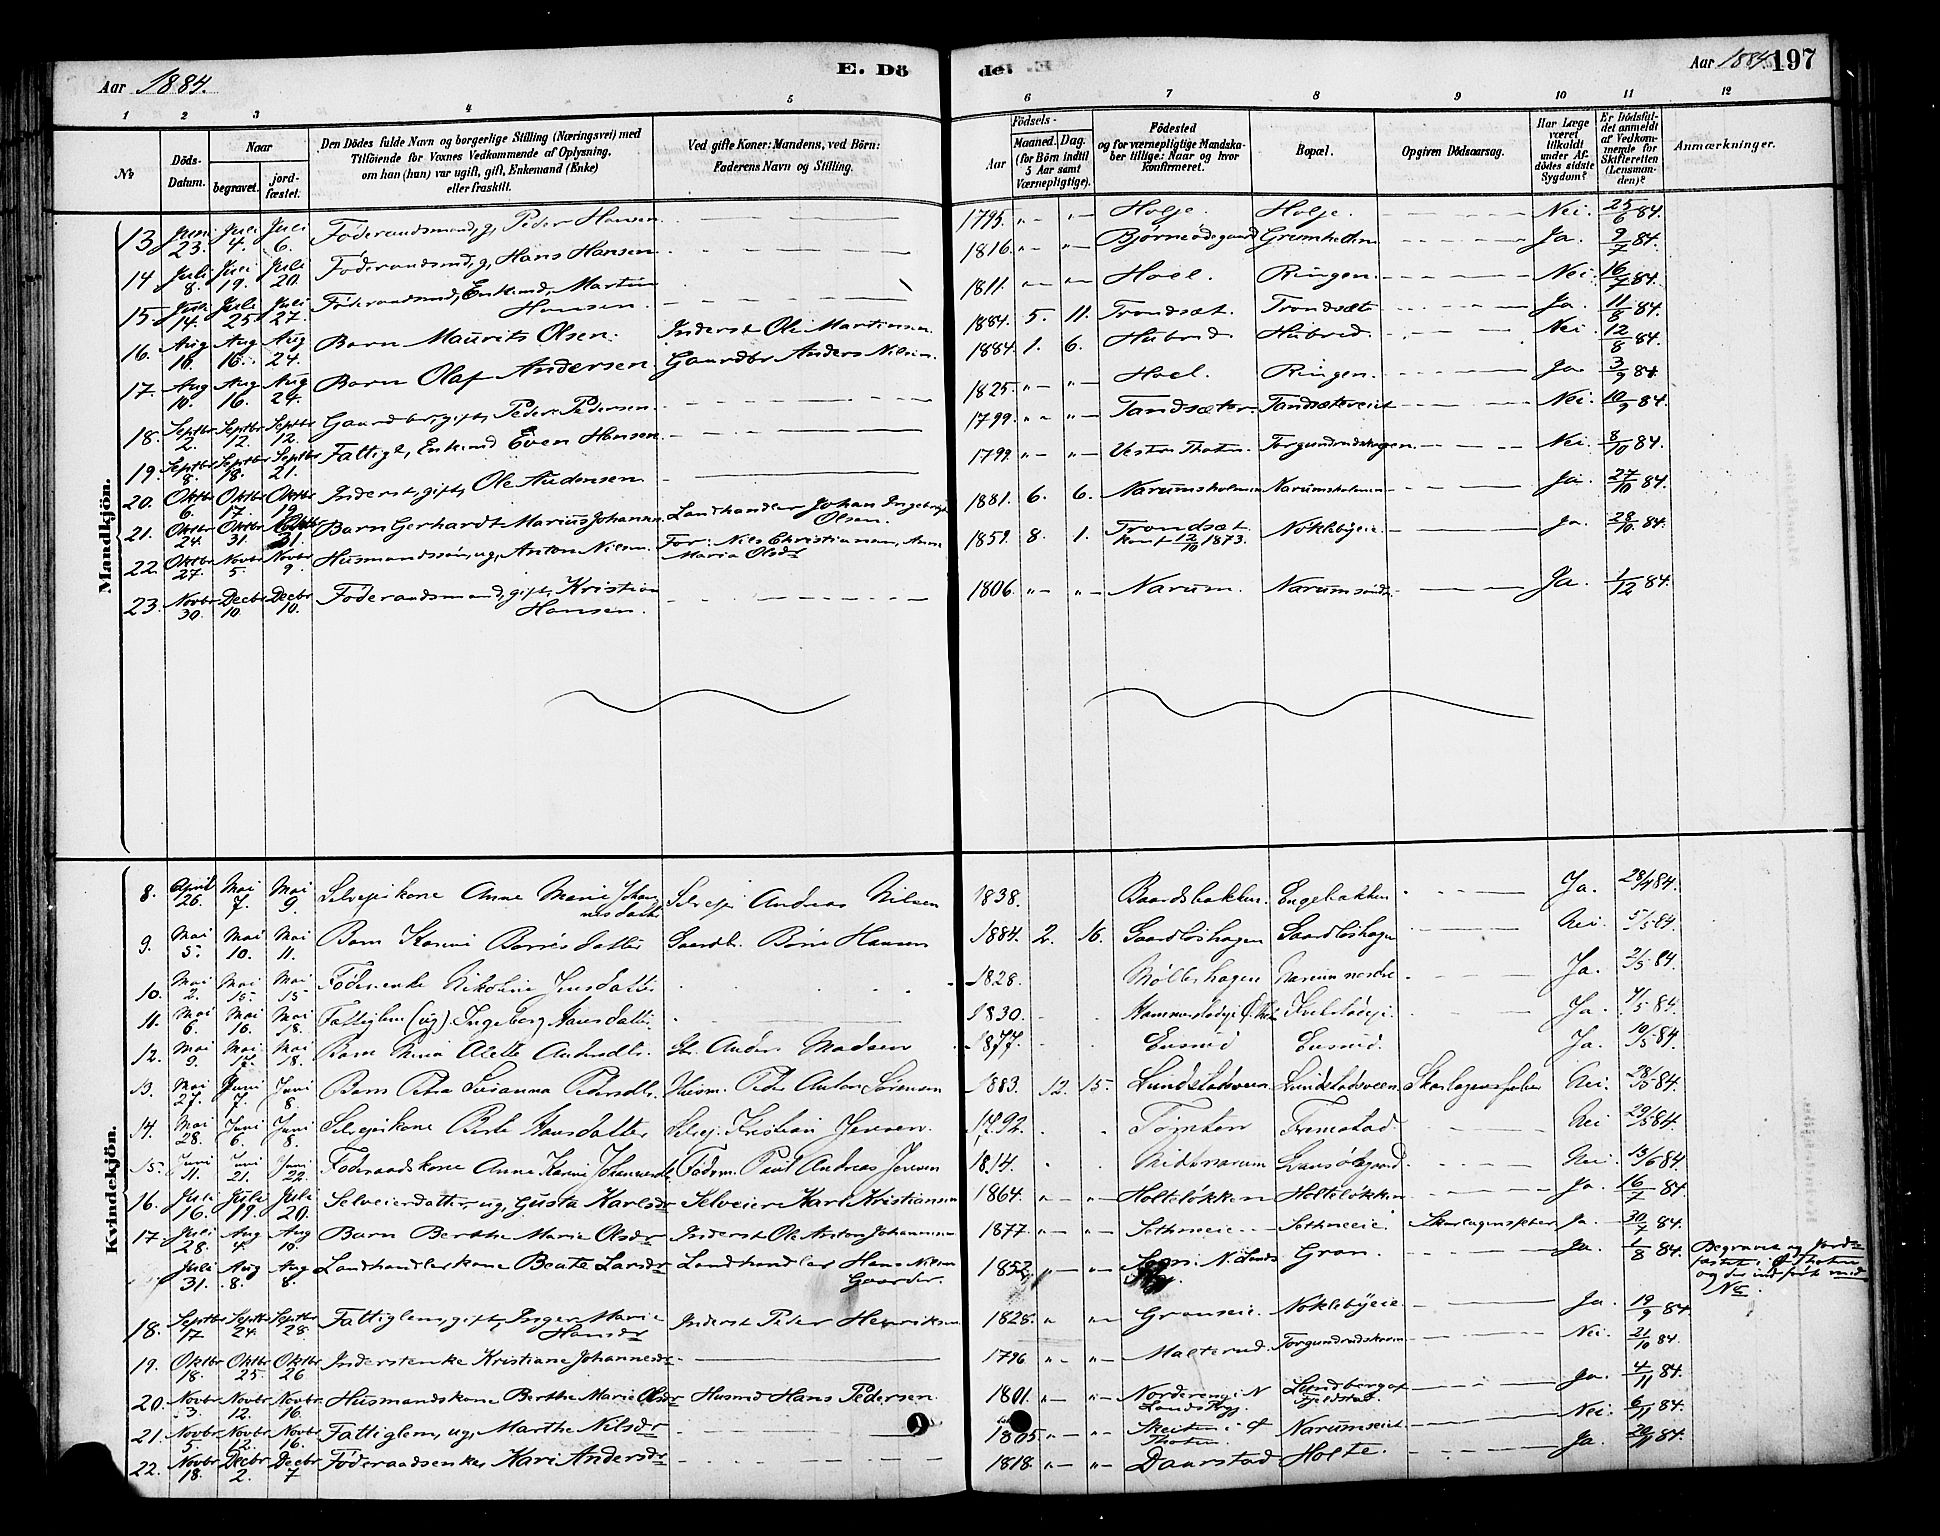 Aar 1884. E. Dö de. Aar 1884. 197
1 2 3 4 5 6 7 8 9 10 11 12
No Döds-Datum. Naar begravet. jordfæstet. Den Dödes fulde Navn og borgerlige Stilling (Næringsvei) med Tilföiende for Voxnes Vedkommende af Oplysning, om han (hun) var ugift, gift, Enkemand (Enke) eller fraskilt. Ved gifte Koner: Mandens, ved Börn: Faderens Navn og Stilling. Födsels- Aar Maaned. Dag. (for Börn indtil 5 Aar samt Værnepligtige). Födested og for værnepligtige Mandskaber tillige: Naar og hvor konfirmeret. Bopæl. Opgiven Dödsaarsag. Har Læge været tilkaldt under Afdödes sidste Sygdom? Er Dödsfaldet anmeldt af Vedkommende for Skifteretten (Lensmanden)? Anmærkninger.
Mandkjön.
13 Juni 23. Juli 4. Juli 6. Föderaadsmand, g, Peder Hansen 1795. Holje. Holje. Nei. 25/6 84.
14 Juli 8. Juli 19. Juli 20. Föderaadsmd, g, Hans Hansen 1816. Bjørneødegaard Grimhelden Ja. 9/7 84.
15. Juli 14. Juli 25 Juli 27. Föderaadsmd, Enkemd, Martin Hansen. 1811. Hoel. Ringen. Nei. 16/7 84.
16. Aug 10. Aug 16. Aug 24. Barn Maurits Olsen. Inderst Ole Martinsen 1884. 5. 11. Trondsæt. Trondsæt Ja. 11/8 84.
17. Aug 10. Aug 16. Aug 24. Barn Olaf Andersen. Gaardbr Anders Nilsen. 1884. 1. 6. Hubred. Hubred. Nei. 12/8 84.
18. Septbr 2. Septbr 12. Septbr 12. Gaardbr, gift, Peder Pedersen. 1825. Hoel. Ringen. Ja. 3/9 84
19. Septbr 8. Septbr 18. Septbr 21. Fattigl, Enkemd Even Hansen 1799. Tandsæter. Tandsætereiet Nei. 10/9 84.
20. Oktbr 6. Oktbr 17. Oktbr 19 Inderst, gift, Ole Andersen 1799. Vestre Thoten. Torgundrudskogen Nei. 8/10 84.
21. Oktbr 24. Oktbr 31. Oktbr 31. Barn Gerhardt Marius Johansen Landhandler Johan Ingebrigt Olsen. 1881. 6. 6. Narumsholmen Narumsholmen Ja. 27/10 84.
22. Oktbr 27. Novbr 5. Novbr 9 Husmandssön, ug, Anton Nilsen. For: Nils Christiansen, Anne Maria Olsdr 1859. 8. 1. Trondsæt konf 12/10 1873. Nøklebyeie Ja. 28/10 84.
23. Novbr 30. Decbr 10. Decbr 10. Föderaadsmand, gift, Kristian Hansen. 1806. Narum. Narumsøndr Ja. 1/12 84.
Kvindekjön.
8. April 26. Mai 7. Mai 9. Selveierkone Anne Marie Johannesdatter Selvej. Andreas Nilsen 1838. Baardsbakken. Engebakken Ja. 28/4 84.
9. Mai 5. Mai 10. Mai 11. Barn Karine Børresdatter Gaardb. Børre Hansen 1884. 2. 16. Gaardløshagen Gaardløshagen Nei. 5/5 84.
10. Mai 2. Mai 15. Mai 15 Føderenke Nikoline Jensdatter. 1828. Møllerhagen Narum nordre Ja. 2/5 84.
11. Mai 6. Mai 16. Mai 18. Fattiglem (ug) Ingeborg Hansdatter. 1830. Ja. 7/5 84.
12. Mai 9. Mai 17. Mai 18. Barn Alette Andersdtr. Anders Madsen 1877. Ensrud Ensrud. Ja. 10/5 84.
13. Mai 27. Juni 7. Juni 8. Barn Petra Susanna Pedersdtr. Husm. Peder Anton Sørensen 1883. 12. 15. Lundstadsveen Lundstadsveen Skarlagensfeber Nei. 28/5 84.
14. Mai 28. Juni 6. Juni 8. Selveierkone Berte Hansdatter Selvej. Kristian Jensen. 1792. Tømten Fremstad Nei 29/5 84
15. Juni 11. Juni 21. Juni 22. Føderaadskone Anne Karine Johannesdtr Födrm. Paul Andreas Jensen 1814. Midtnarum Nei. 13/6 84.
16. Juli 16. Juli 19. Juli 20. Selveierdatter, ug, Gusta Karlsdr Selveier Karl Kristiansen 1864. Holteløkken Holteløkken Ja. 16/7 84.
17. Juli 28. Aug 4. Aug 10. Barn Berthe Marie Olsdr Inderst Ole Anton Johannesen 1877. Sethneeie Sethneeie Skarlagensfeber Ja. 30/7 84.
Juli 31. Aug 8. Aug 8. Landhandlerkone Beate Larsdr Landhandler Hans Nilsen Gaarder. 1852. N. Lands Gran. Ja. 1/8 84. Begravet og Jordfæstet i Ø. Thoten og der indført med No.
18. Septbr 17 Septbr 24. Septbr 28. Fattiglem, gift, Inger Marie Hansdr Inderst Peder Henriksen 1828. Graneeie. Nøklebyeie. Ja. 19/9 84
19. Oktbr 18. Oktbr 25. Oktbr 26 Inderstenke Kristiane Johannesdr 1796. Malterud. Torgundrudskroen Nei. 21/10 84.
20. Novbr 3. Novbr 12. Novbr 16. Husmandskone Berthe Marie Olsdr Husmd Hans Pedersen. 1801. Nordereng i N Lands Pgj. Lundberg af Fjeldstad. Ja. 4/11 84.
21. Novbr 5. Novbr 12. Novbr 16. Fattiglem, ug, Marthe Nilsdr 1805. Skeiten i Ø Thoten. Narumseiet Nei. 6/11 84.
22. Novbr 18. Decbr 2. Decbr 7 Föderaadsenke, Kari Andersdr 1818. Daarstad Holte. Ja. 20/11 84.